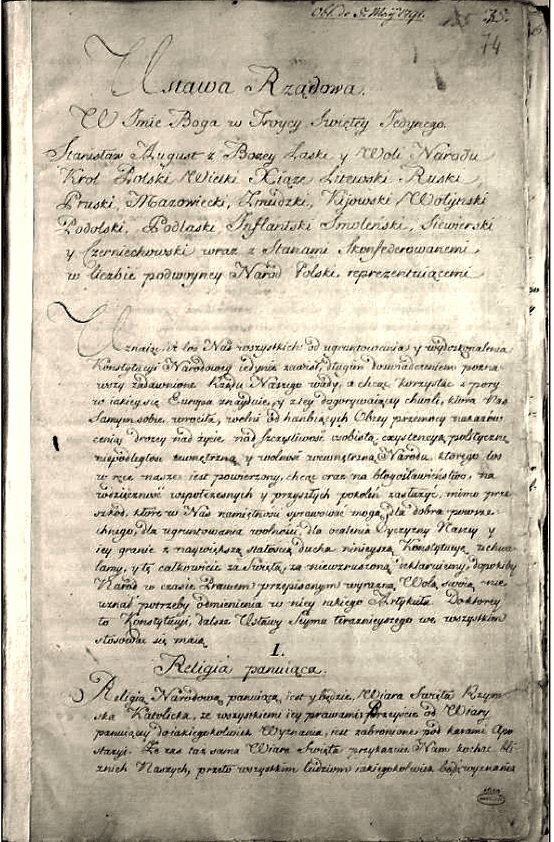 Obl. de 5 Maij 1791.
35.
74
Ustawa Rządowa.
W Imie Boga w Troycy Swiętey Iedynego.
Stanisław August z Bożey Łaski y Woli Narodu
Krol Polski Wielki Xiąże Litewski Ruski
Pruski, Mazowiecki, Zmudzki, Kijowski Wołyński
Podolski, Podlaski Inflantski Smoleński, Siewierski
y Czerniechowski wraz z Stanami Skonfederowanemi
w liczbie podwoyney Naród Polski reprezentuiącemi
Uznaiąc, iż los Nas wszystkich od ugruntowania y wydoskonalenia
Konstytucyi Narodowey iedynie zawisł, długim doswiadczeniem pozna-
wszy zadawnione Rządu Naszego wady, a chcąc korzystać z pory
w iakiey się Europa znayduie, y z tey dogorywaiącey chwili, która Nas
Samym sobie wrociła, wolni od hańbiących Obcey przemocy nakazów
ceniąc drożey nad życie nad szczęśliwość osobistą exystencyą polityczną
niepodległość zewnętrzną y wolność wewnętrzną Narodu, którego los
w ręce nasze iest powierzony, chcąc oraz na błogosławieństwo, na
wdzięczność współczesnych y przyszłych pokoleń zasłużyć, mimo prze-
szkód, które w Nas namiętności sprawować mogą, dla dobra powsze-
chnego, dla ugruntowania wolności, dla ocalenia Oyczyzny Naszey y
iey granic z naywiększą stałością ducha ninieyszą Konstytucyę uchwa-
lamy, y tę całkowicie za Swiętą, za niewzruszoną deklaruiemy, dopokiby
Naród w czasie Prawem przepisanym wyraźną Wolą swoią nie
uznał potrzeby odmienienia w niey iakiego Artykułu. Do ktorey
to Konstytucyi, dalsze Ustawy Seymu teraznieyszego we wszystkim
stosować się maią
I.
Religia panuiąca.
Religią Narodową panuiącą iest y będzie Wiara Swięta Rzym-
ska Katolicka, ze wszystkiemi iey prawami, Przeyście od Wiary
panuiącey do iakiegokolwiek Wyznania, iest zabronione pod karami Apo-
stazyi. Że zaś taż sama Wiara Swięta przykazuie Nam kochać bli-
znich Naszych, przeto wszystkim ludziom iakiegokolwiek bądź wyznania